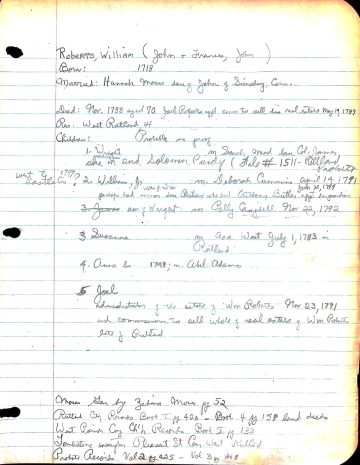 Roberts, William (John + Frances, John)
Born: 1718
Married: Hannah Moses dau of John of Simsbury, Conn.
Dead: Nov. 1788 aged 70 Joel Roberts appt comm to sell his real estate May 19, 1789
Res: West Rutland, Vt
Children: Probable no proof
1. Wright m Sarah, mad dau Col. James
she m 2nd Solomon Purdy (File # 1511 - Rutland Probate
went to 1797
2. William, Jr m. Deborah Cummins April 14, 1791
3 James son of Wright m Polly Campbell Nov 22, 1792
3 Susanna m Asa West July 1, 1783 in
Rutland
4. Anna b 1748; m. Abel Adams
5 Joel
administrator of the estate of Wm Roberts Nov 23, 1791
and commissioner to sell whole of real estate of Wm Roberts
late of Rutland
Moses Gen by Zebina Moses pg 52
Rutland Cty Probate Book I pg 420 - Book 4 pg 158 land deeds
West Parish Cong Ch'h Records Book I pg 133
Tombstone inscription Pleasant St Cem West Rutland
Probate Records Vol 2 pg 225 - Vol 3 pg 208